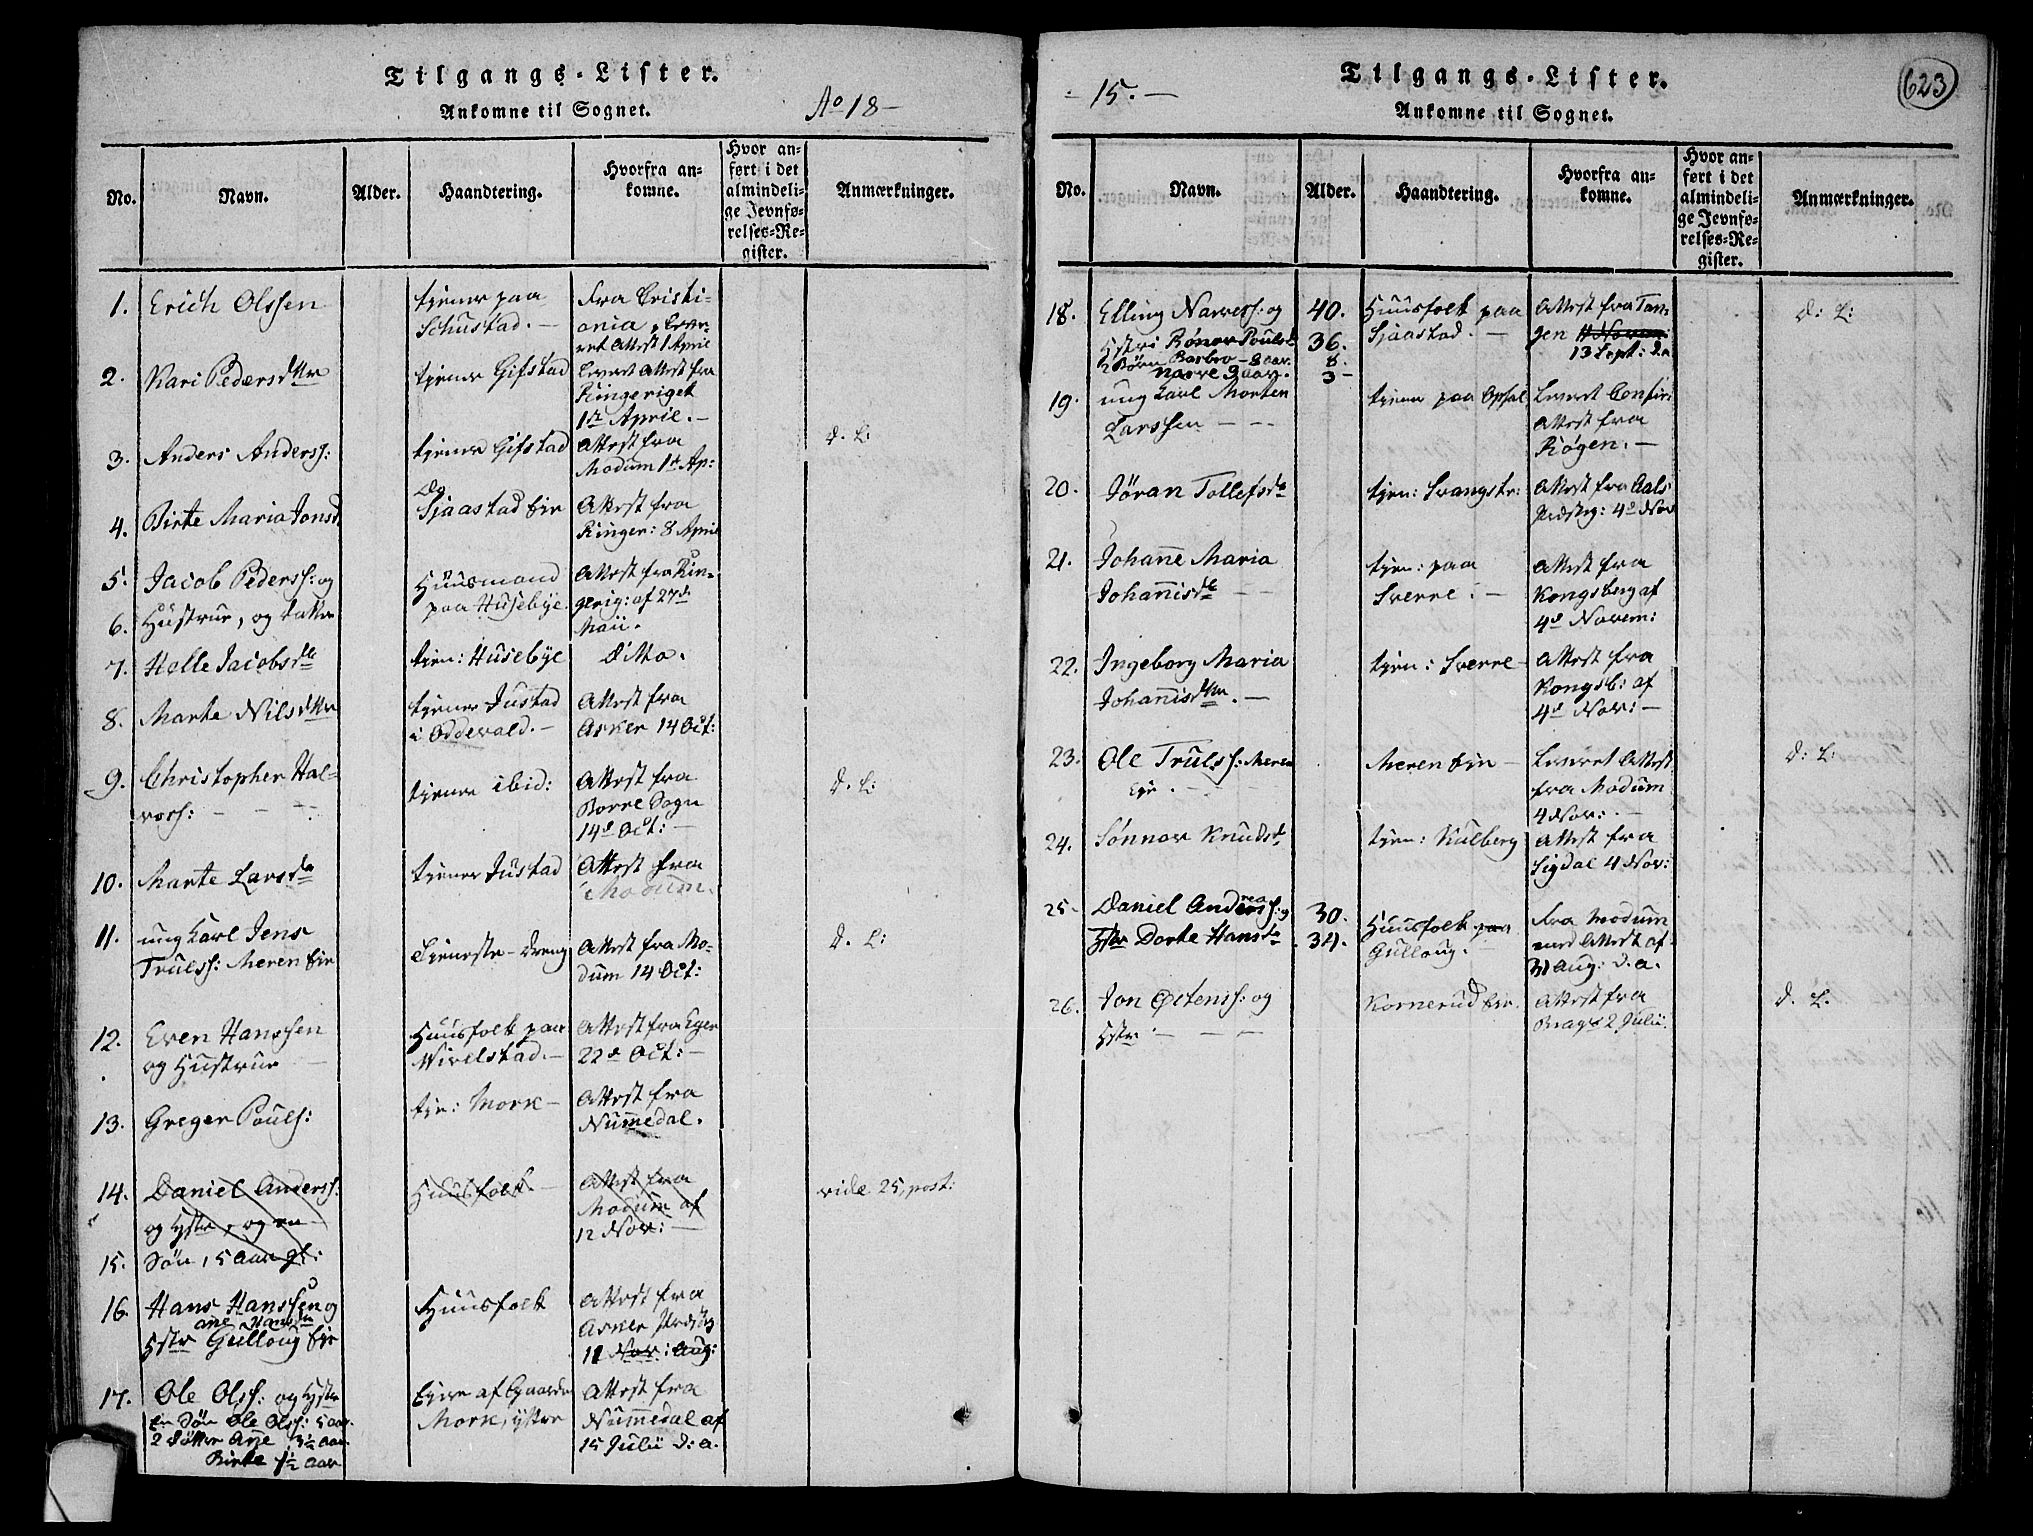 Tilgangs-Lister.
Ankomne til Sognet.
Ao 18-
No.
Navn.
Alder.
Haandtering.
Hvorfra an-
komne.
Hvor an-
ført i det
almindeli-
ge Jevnfø-
relses-Re-
gister.
Anmærkninger.
1.
Erich Olssen
tjener paa
Schustad. -
Fra Cristi-
ania, lever-
ret Attest 1 April
2.
Kari Pedersdttr
tjener Gifstad
Levert Attest fra
Ringeriget
1st April. -
3.
Anders Anderss:
tjener Gifstad
Attest fra
Modum 1st Ap:
d. L:
4.
Birte Maria Jonsd
Sjaastad Eje
Attest fra
Ringer: 8 April
5.
Jacob Pederss: og
6.
Hustrue, og datter
Huusmand
paa Husebye.
Attest fra Rin-
gerig: af 27d
Maii.
7.
Helle Jacobsdtr
tjen: Husebye
ditto.
8.
Marte Nilsdttr
tjener Justad
i Oddevald. -
Attest fra
Asker 14 Oct:
9.
Christopher Hal-
vors: - - -
tjener ibid:
Attest fra
Borre Sogn
14d Oct: -
d. L:
10.
Marte Larsdtr
tjener Justad
Attest fra
Modum.
11.
ung Karl Jens
Trulss: Meren Eje
Tjeneste-Dreng
Attest fra Mo-
dum 14 Oct:
d. L:
12.
Even Hanssen
og Hustrue -
Huusfolk paa
Wivelstad. -
Attest fra Eger
22d Oct: -
13.
Greger Pouls:
tje: Mork -
Attest fra
Nummedal.
14.
Daniel Anderss:
og Hstr, og en
15.
Søn, 5 aar gl:
Huusfolk. -
Attest fra
Modum af
12 Nov: -
vide 25, post:
16.
Hans Hanssen og
ane Hansdtr
Hstr Gulloug Eje
Huusfolk
Attest fra
Asker Prdstg
11 Nov: Aug:
17.
Ole Olss: og Hstr
En Søn Ole Olss: 5 aar.
2 døttre Ane 3½ aar
Birte 1½ aar
Ejere af Gaarden
Mork, yttre
Attest fra
Nummedal af
15 Julii d: a.
- 15. -
Tilgangs-Lister.
Ankomne til Sognet.
623
No.
Navn.
Alder.
Haandtering.
Hvorfra an-
komne.
Hvor an-
ført i det
almindeli-
ge Jevnfø-
relses-Re-
gister.
Anmærkninger.
18.
Elling Narvess: og
Hstr: Rønov Poulsd
2 Børn Barbro - 8 aar.
Narve 3 aar.
40.
36.
8.
3 -
Huusfolk paa
Sjaastad. -
Attest fra Tan-
gen 11 Novem:
13 Sept: d. a
d: L:
19.
ung Karl Morten
Larssen - - -
tjener paa Opsal
Levert Confir:
Attest fra
Røgen. -
20.
Jøran Tollefsdtr
tjen: Svangstr:
Attest fra Aals
Prdstg: 4d Nov
21.
Johanne Maria
Johannisdtr - -
tjen: paa
Sverre. -
Attest fra
Kongsberg af
4d Novem:
22.
Ingeborg Maria
Johannisdttr. -
tjen: Sverre -
Attest fra
Kongsb: af
4d Nov: -
23.
Ole Trulss: Meren
Eje. - -
Meren Eje -
Levert Attest
fra Modum
4 Nov: -
d: L:
24.
Sønnov Knudsd
tjen: Kulberg
Attest fra
Sigdal 4 Nov:
25.
Daniel Andreass: og
Hstr Dorte Hansdtr
30.
34.
Huusfolk paa
Gulloug. -
Fra Modum
med Attest af
31 Aug: d. a.
26.
Jon Østenss: og
Hstr. - - -
Kornerud Eje.
Attest fra
Brags 2 Julii.
d. L.